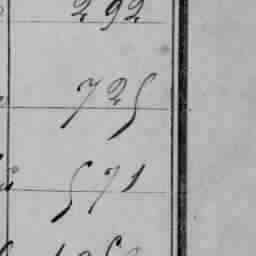 292
725
571